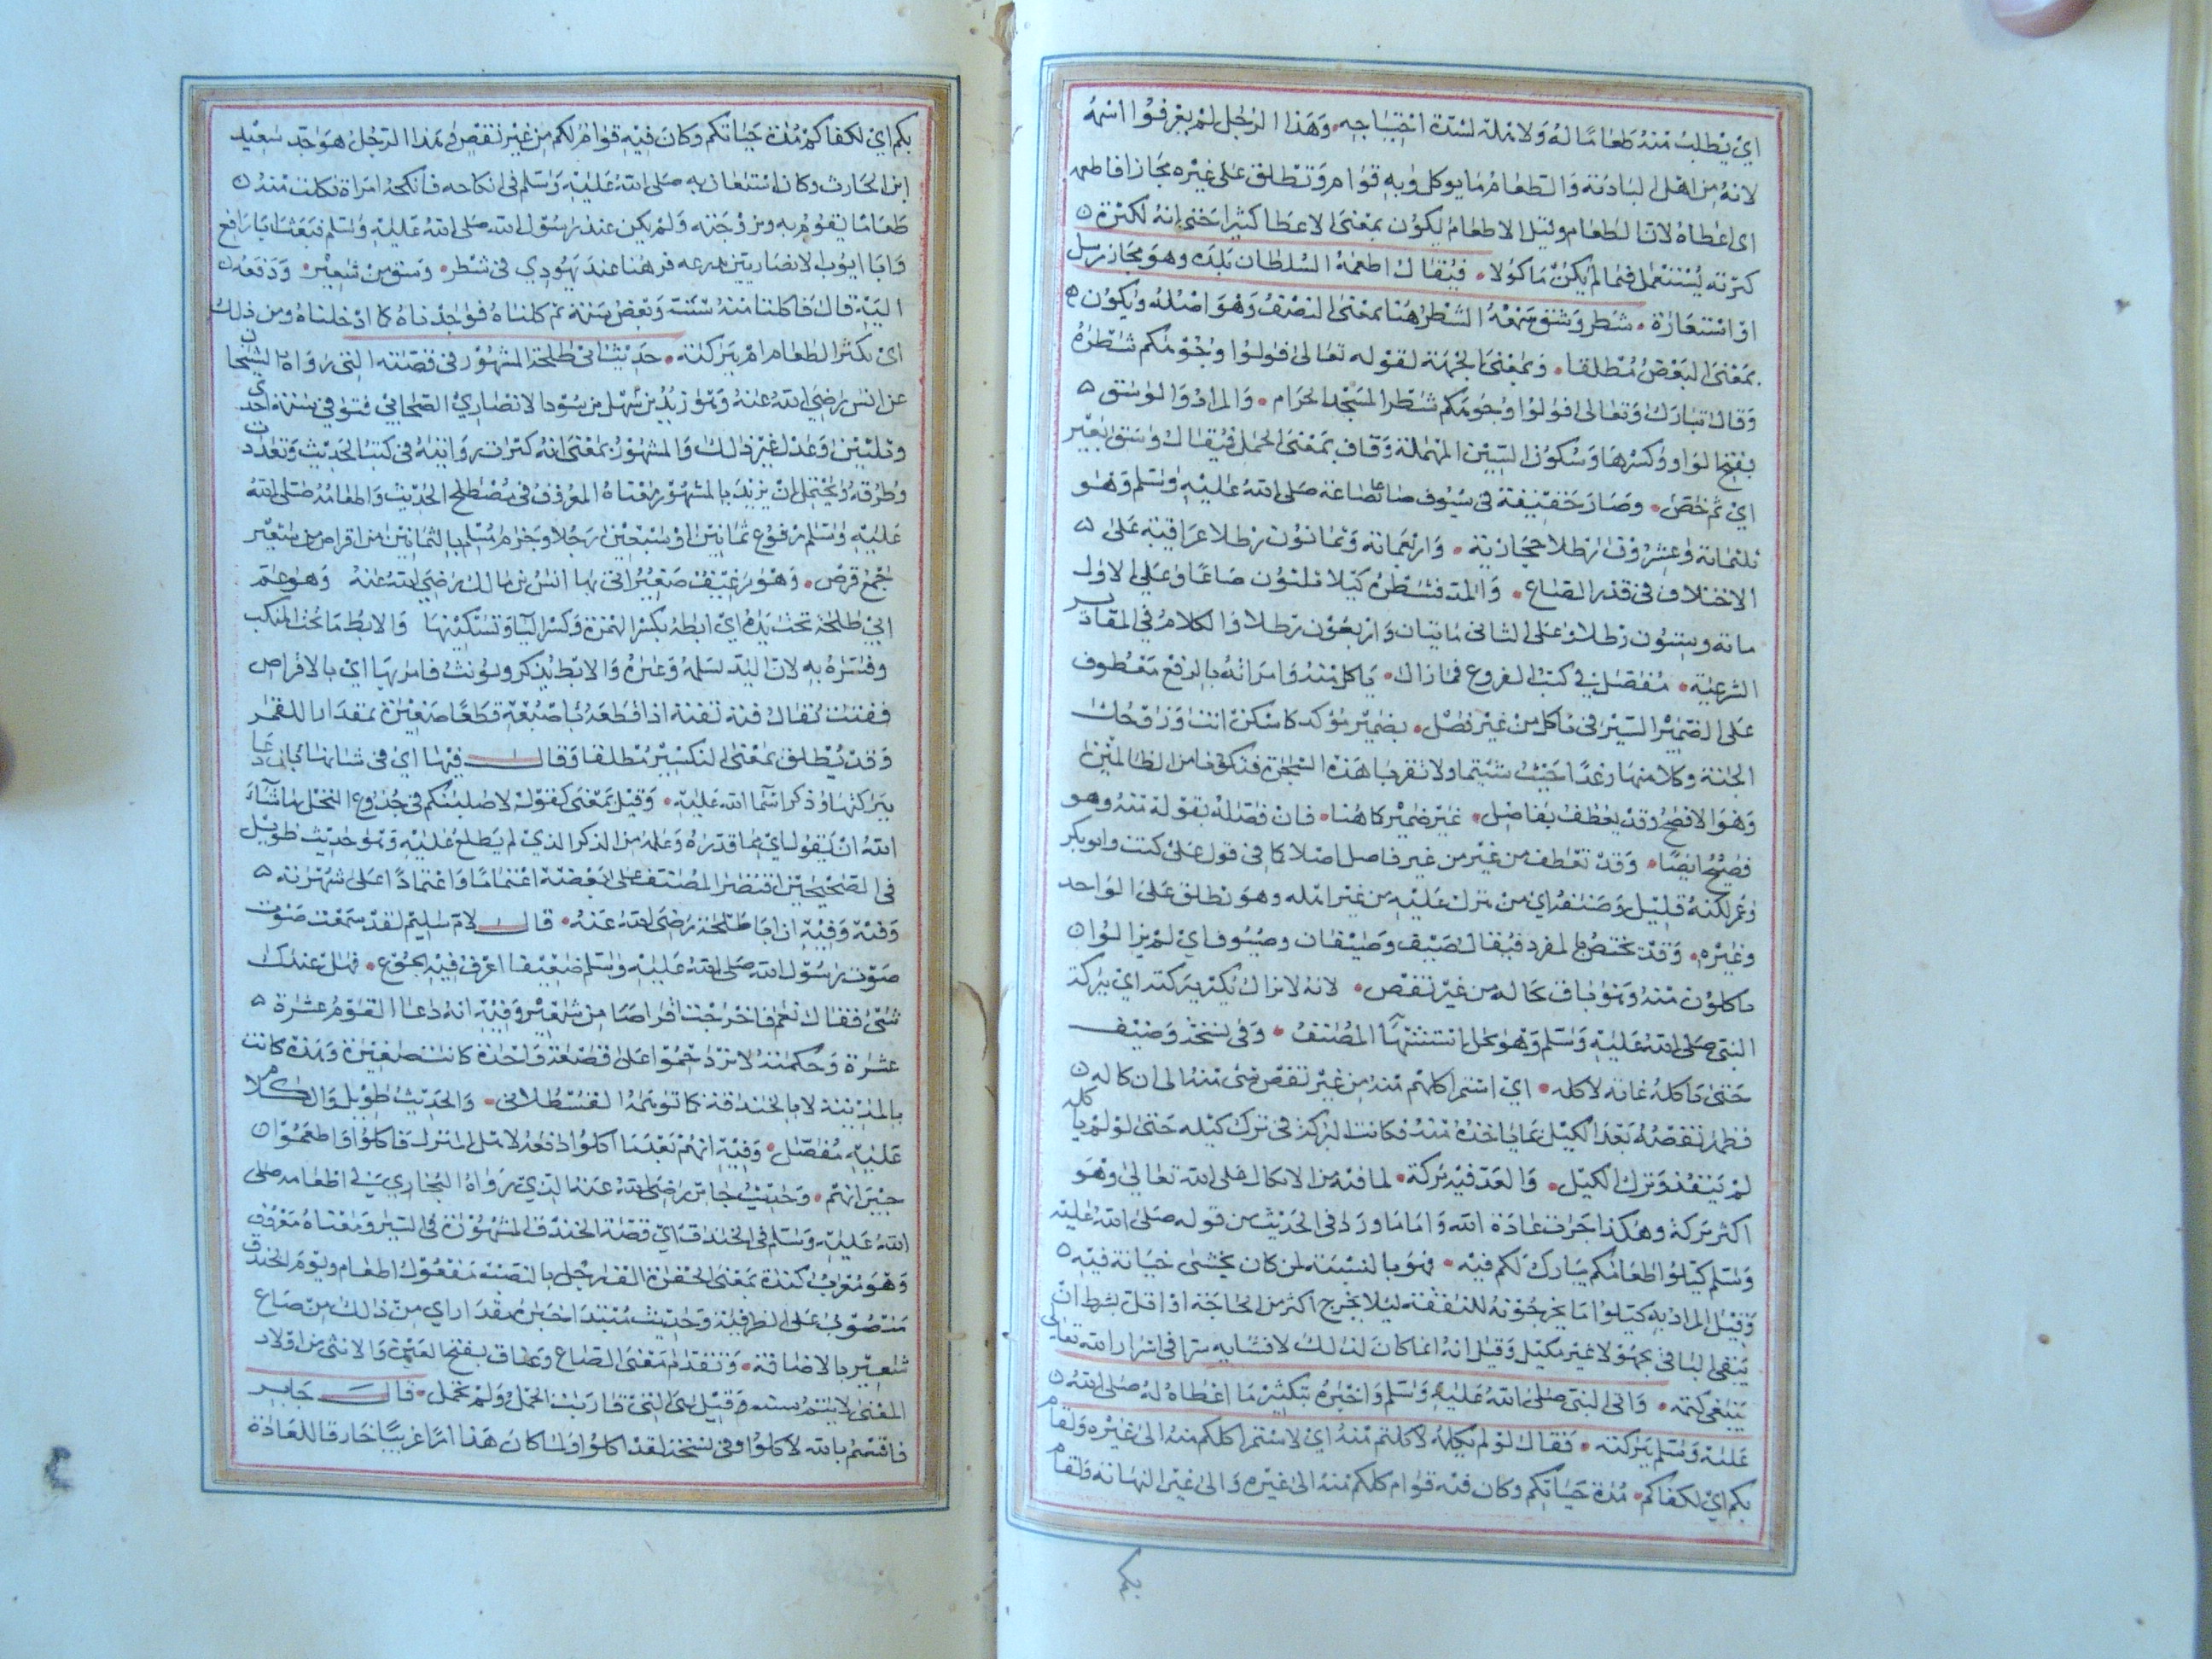 اي يطلب منه طعاما له ولاهله لشدة احتياجه وهذا الرجل لم يعرفوا اسمه
لانه من اهل البادية والطعام ما يوكل وبه قوام وتطلق على غيره مجازا فاطعمه
اي اعطاه لان الطعام وقيل الاطعام يكون بمعنى الاعطا كثيرا حتى انه لكثرة
كثرته يستعمل فيما لم يكن ماكولا فيقال اطعمه السلطان بلده وهو مجاز مرسل
او استعارة شطر وسق شعير الشطر هنا بمعنى النصف وهو اصله ويكون
بمعنى البعض مطلقا وبمعنى الجهة لقوله تعالى فولوا وجوهكم شطره
وقال تبارك وتعالى فولوا وجوهكم شطر المسجد الحرام والمراد والوسق
بفتح الواو وكسرها وسكون السين المهملة وقاف بمعنى الحمل فيقال وسق بعير
اي ثم خص وصار حقيقة في ستون صاعا بصاعه صلى الله عليه وسلم وهو
ثلثمائة وعشرون رطلا حجازية واربعمائة وثمانون رطلا عراقية على
الاختلاف في قدر الصاع والمد فشطره كيلا ثلثون صاعا وعلى الاول
مائة وستون رطلا وعلى الثاني مايتان واربعون رطلا والكلام في المقادير
الشرعية مفصل في كتب الفروع فما زال ياكل منه وامراته بالرفع معطوف
على الضمير الستير في ياكل من غير فصل بضمير مؤكد كاسكن انت وزوجك
الجنة وكلا منها رغدا حيث شئتما ولا تقربا هذه الشجرة فتكونا من الظالمين
وهو الافصح وقد يعطف بفاصل غير ضمير كما هنا فان فصله بقوله منه وهو
فصيح ايضا وقد تعطف من غير من غير فاصل اصلا كما في قول علي كنت وابو بكر
وعمر لكنه قليل وضيفه اي من نزل عليه من غير اهله وهو يطلق على الواحد
وغيره وقد يختص بالمفرد فيقال ضيف وضيفان وضيوف اي لم يزالوا
ياكلون منه وهو باق بحاله من غير نقص لانه لا يزال يكثر ببركته اي ببركة
النبي صلى الله عليه وسلم وهو محل استشهاد المصنف وفي نسخة وضيف
حتى ياكله غاية لاكله اي استمر اكلهم منه من غير نقص شي منه الى ان كاله
فظهر نقصه بعد الكيل بما ياخذه منه فكانت البركة في ترك كيله حتى لو لم ياكله
لم ينفذ وترك الكيل والعد فيه بركة لما فيه من الاتكال على الله تعالى وهو
اكثر بركة وهكذا جرت عادة الله واما ما ورد في الحديث من قوله صلى الله عليه
وسلم كيلوا طعامكم يبارك لكم فيه فهو بالنسبة لمن كان يخشى خيانة فيه
وقيل المراد به كيلوا ما يخرجونه للنفقة ليلا يخرج اكثر من الحاجة او اقل بشرط ان
يبقى الباقي مجهولا غير مكيل وقيل انه انما كان لذلك لافشايه سرا في اسرار الله تعالى
ينبغي كتمه واتى النبي صلى الله عليه وسلم واخبره بتكثير ما اعطاه له صلى الله
عليه وسلم ببركته فقال لو لم يكله لاكلتم منه اي لاستمر اكلكم منه الى غيره ولقام
بكم اي لكفاكم مدة حياتكم وكان فيه قوام كلكم منه الى غيره والى غير النهاية ولقام
بكم
بكم اي لكفاكم مدة حياتكم وكان فيه قوام لكم من غير نقص وهذا الرجل هو جد سعيد
ابن الحارث وكان استعان به صلى الله عليه وسلم في انكاحه فانكحه امراة فطلبت منه
طعاما يقوم به وبزوجته ولم يكن عند رسول الله صلى الله عليه وسلم فبعث ابا رافع
وابا ايوب الانصاريين بدرعه فرهنا عند يهودي في شطر وسق من شعير ودفعه
اليه قال فاكلنا منه سنة وبعض سنة ثم كلناه فوجدناه كما ادخلناه ومن ذلك
اي تكثر الطعام امر ببركته حديث ابي طلحة المشهور في قصته التي رواها الشيخان
عن انس رضي الله عنه وهو زيد بن سهل من سود الانصاري الصحابي فتوفي سنة احدى
وثلاثين وعد لغير ذلك والمشهور بمعنى انه كثرت روايته في كتب الحديث وتعددت
وطرقه ويحتمل ان يريد بالمشهور معناه المعروف في مصطلح الحديث واطعامه صلى الله
عليه وسلم مرفوع ثمانين او سبعين رجلا وجزم مسلم بالثمانين من اقراص من شعير
جمع قرص وهو رغيف صغير اتى بها انس بن مالك رضي الله عنه وهو عم
ابي طلحة تحت يده اي ابطه بكسر الهمزة وكسر البا وتسكينها والابط ما تحت المنكب
وفسره به لان اليد تسلمه وغيره والابط يذكر ويؤنث فامر بها اي بالاقراص
ففتت يقال فته تفته اذا قطعه باصبعه قطعا صغيرة بمقدار اللقمة
وقد يطلق بمعنى التكسير مطلقا وقال فيها اي في شانها مجازا
ببركتها وذكر اسم الله عليه وقيل بمعنى كقوله لاصلبنكم في جذوع النخل ما شاء
الله ان يقول اي بما قدره وعلمه من الذكر الذي لم يطلع عليه وهو حديث طويل
في الصحيحين اقتصر المصنف على بعضه اهتماما واعتمادا على شهرته
وفته وفيه ان ابا طلحة رضي الله عنه قال لام سليم لقد سمعت صوت
صوت رسول الله صلى الله عليه وسلم ضعيفا اعرف فيه الجوع فهل عندك
شي فقال نعم فاخرجت اقراصا من شعير وفيه انه دعا القوم عشرة
عشرة وحكمته لا تزدحموا على قصعة واحدة كانت صغيرة وهذه كانت
بالمدينة لا بالخندق كما توهمه القسطلاني والحديث طويل والكلام
عليه مفصل وفيه انهم بعدما اكلوا دفعه لاهل المنزل فاكلوا واطعموا
جيرانهم وحديث جابر رضي الله عنه الذي رواه البخاري في اطعامه صلى
الله عليه وسلم في الخندق اي قصة الخندق المشهورة في السير ومعناه معروف
وهو معرب كنده بمعنى الحفرة الف رجل بالنصب مفعول اطعام ويوم الخندق
منصوب على الظرفية وحديث مبتدا خبره مقدار اي من ذلك من صاع
شعير بالاضافة وتقدم معنى الصاع وعناق بفتح العين والانثى من اولاد
المعز لا يتم سنته وقيل هي التي قاربت الحمل ولم تحمل قال جابر
فاقسم بالله لاكلوا وفي نسخة لقد اكلوا ولما كان هذا امرا غريبا خارقا للعادة